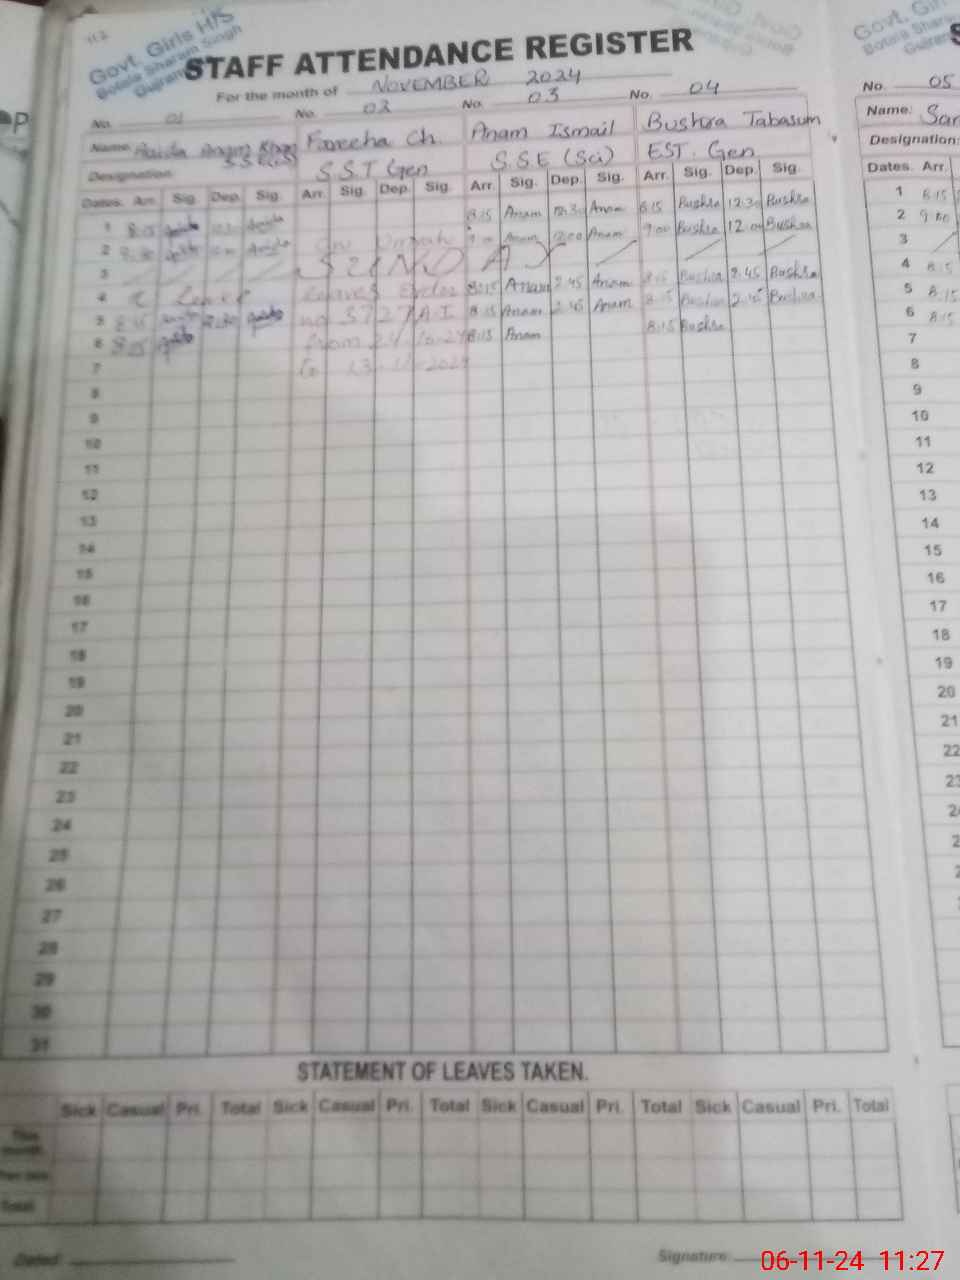 Govt. Girls H/S
Botala Sharam Singh
STAFF ATTENDANCE REGISTER
For the month of NOVEMBER 2024
No. 01 No. 02 No. 03 No. 04
Name: Khan Fareeha Ch. Anam Ismail Bushra Tabasum
Designation: S.S.E(S) S.S.T Gen S.S.E (Sci) EST. Gen
Dates. Arr. Sig. Dep. Sig. Arr. Sig. Dep. Sig. Arr. Sig. Dep. Sig. Arr. Sig. Dep. Sig.
1 8:15 8:15 Anam 12:30 Anam 8:15 Bushra 12:30 Bushra
2 8:30 On 9:00 Anam 12:00 Anam 9:00 Bushra 12:00 Bushra
3 S U N D A Y
4 Leave leaves Order 8:15 Anam 2:45 Anam 8:15 Bushra 2:45 Bushra
5 8:15 no 3727/A.I 8:15 Anam 2:45 Anam 8:15 Bushra 2:45 Bushra
6 8:15 from 24.10.24 8:15 Anam 8:15 Bushra
7 To 13-11-2024
8
9
10
11
12
13
14
15
16
17
18
19
20
21
22
23
24
25
26
27
28
29
30
31
STATEMENT OF LEAVES TAKEN.
Sick Casual Pri. Total Sick Casual Pri. Total Sick Casual Pri. Total Sick Casual Pri. Total
This month
Total
Dated: Signature:
Govt. Gi
Botala Sharam
No. 05
Name: Sar
Designation:
Dates. Arr.
1 8:15
2 9:00
3
4 8:15
5 8:15
6 8:15
7
8
9
10
11
12
13
14
15
16
17
18
19
20
21
22
23
06-11-24 11:27